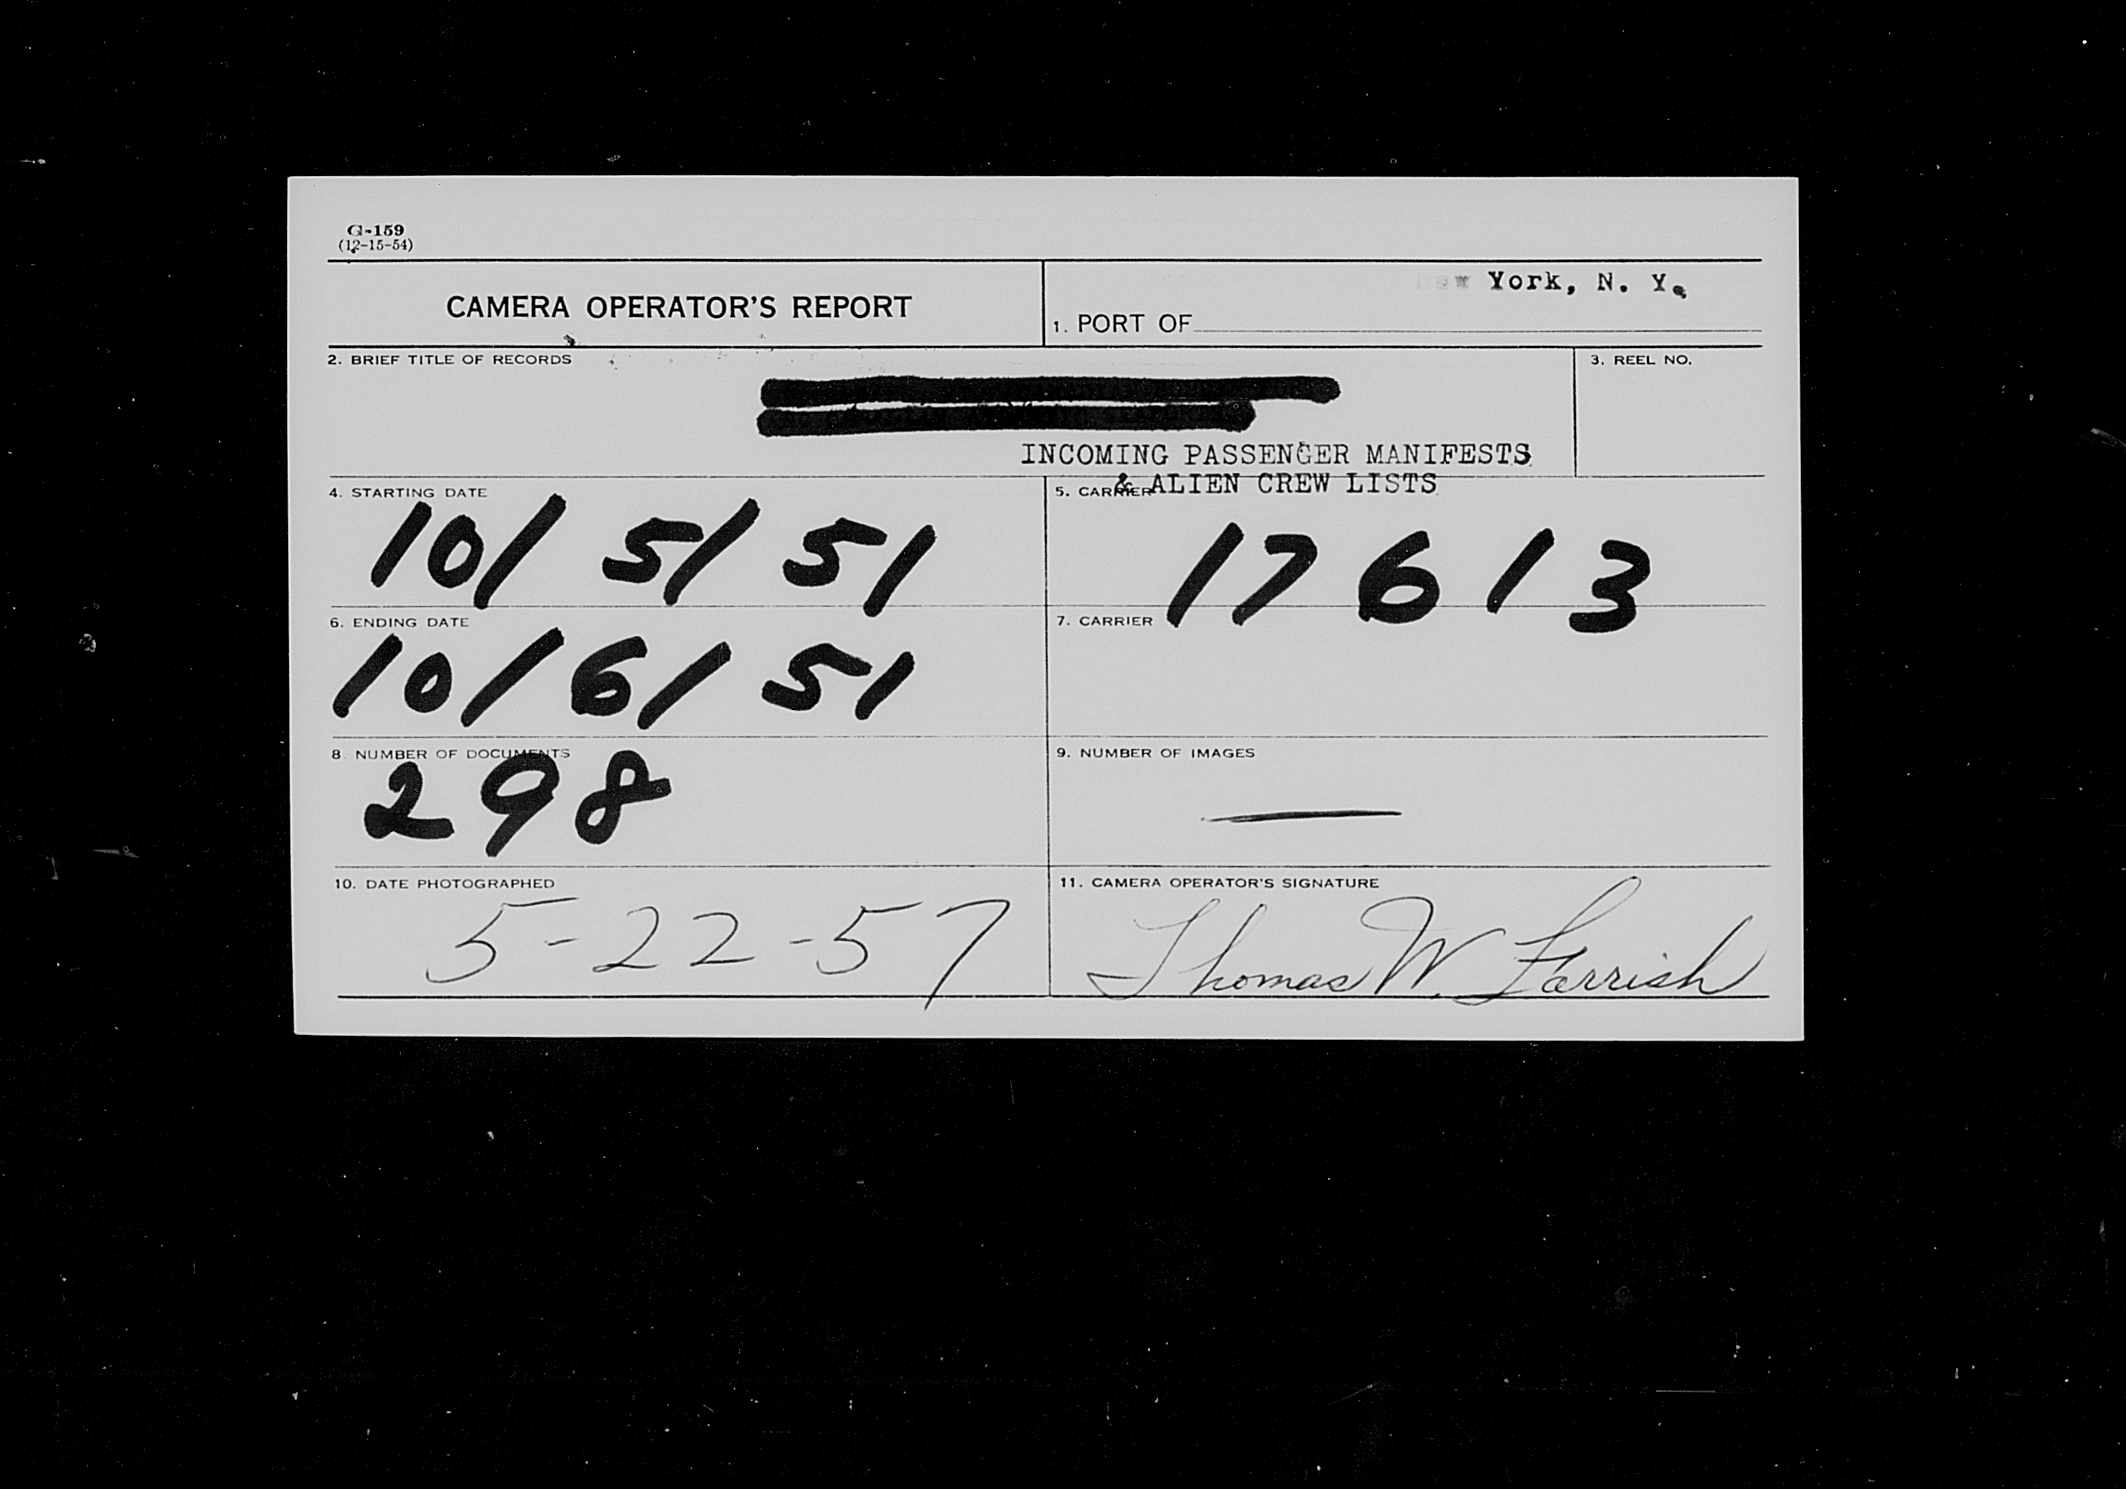 G-159
(12-15-54)
CAMERA OPERATOR'S REPORT
New York, N. Y.
1. PORT OF
2. BRIEF TITLE OF RECORDS
3. REEL NO.
INCOMING PASSENGER MANIFESTS
& ALIEN CREW LISTS
4. STARTING DATE
10/ 5/ 51
5. CARRIER
17613
6. ENDING DATE
10/6/ 51
7. CARRIER
8. NUMBER OF DOCUMENTS
298
9. NUMBER OF IMAGES
—
10. DATE PHOTOGRAPHED
5-22-57
11. CAMERA OPERATOR'S SIGNATURE
Thomas W.